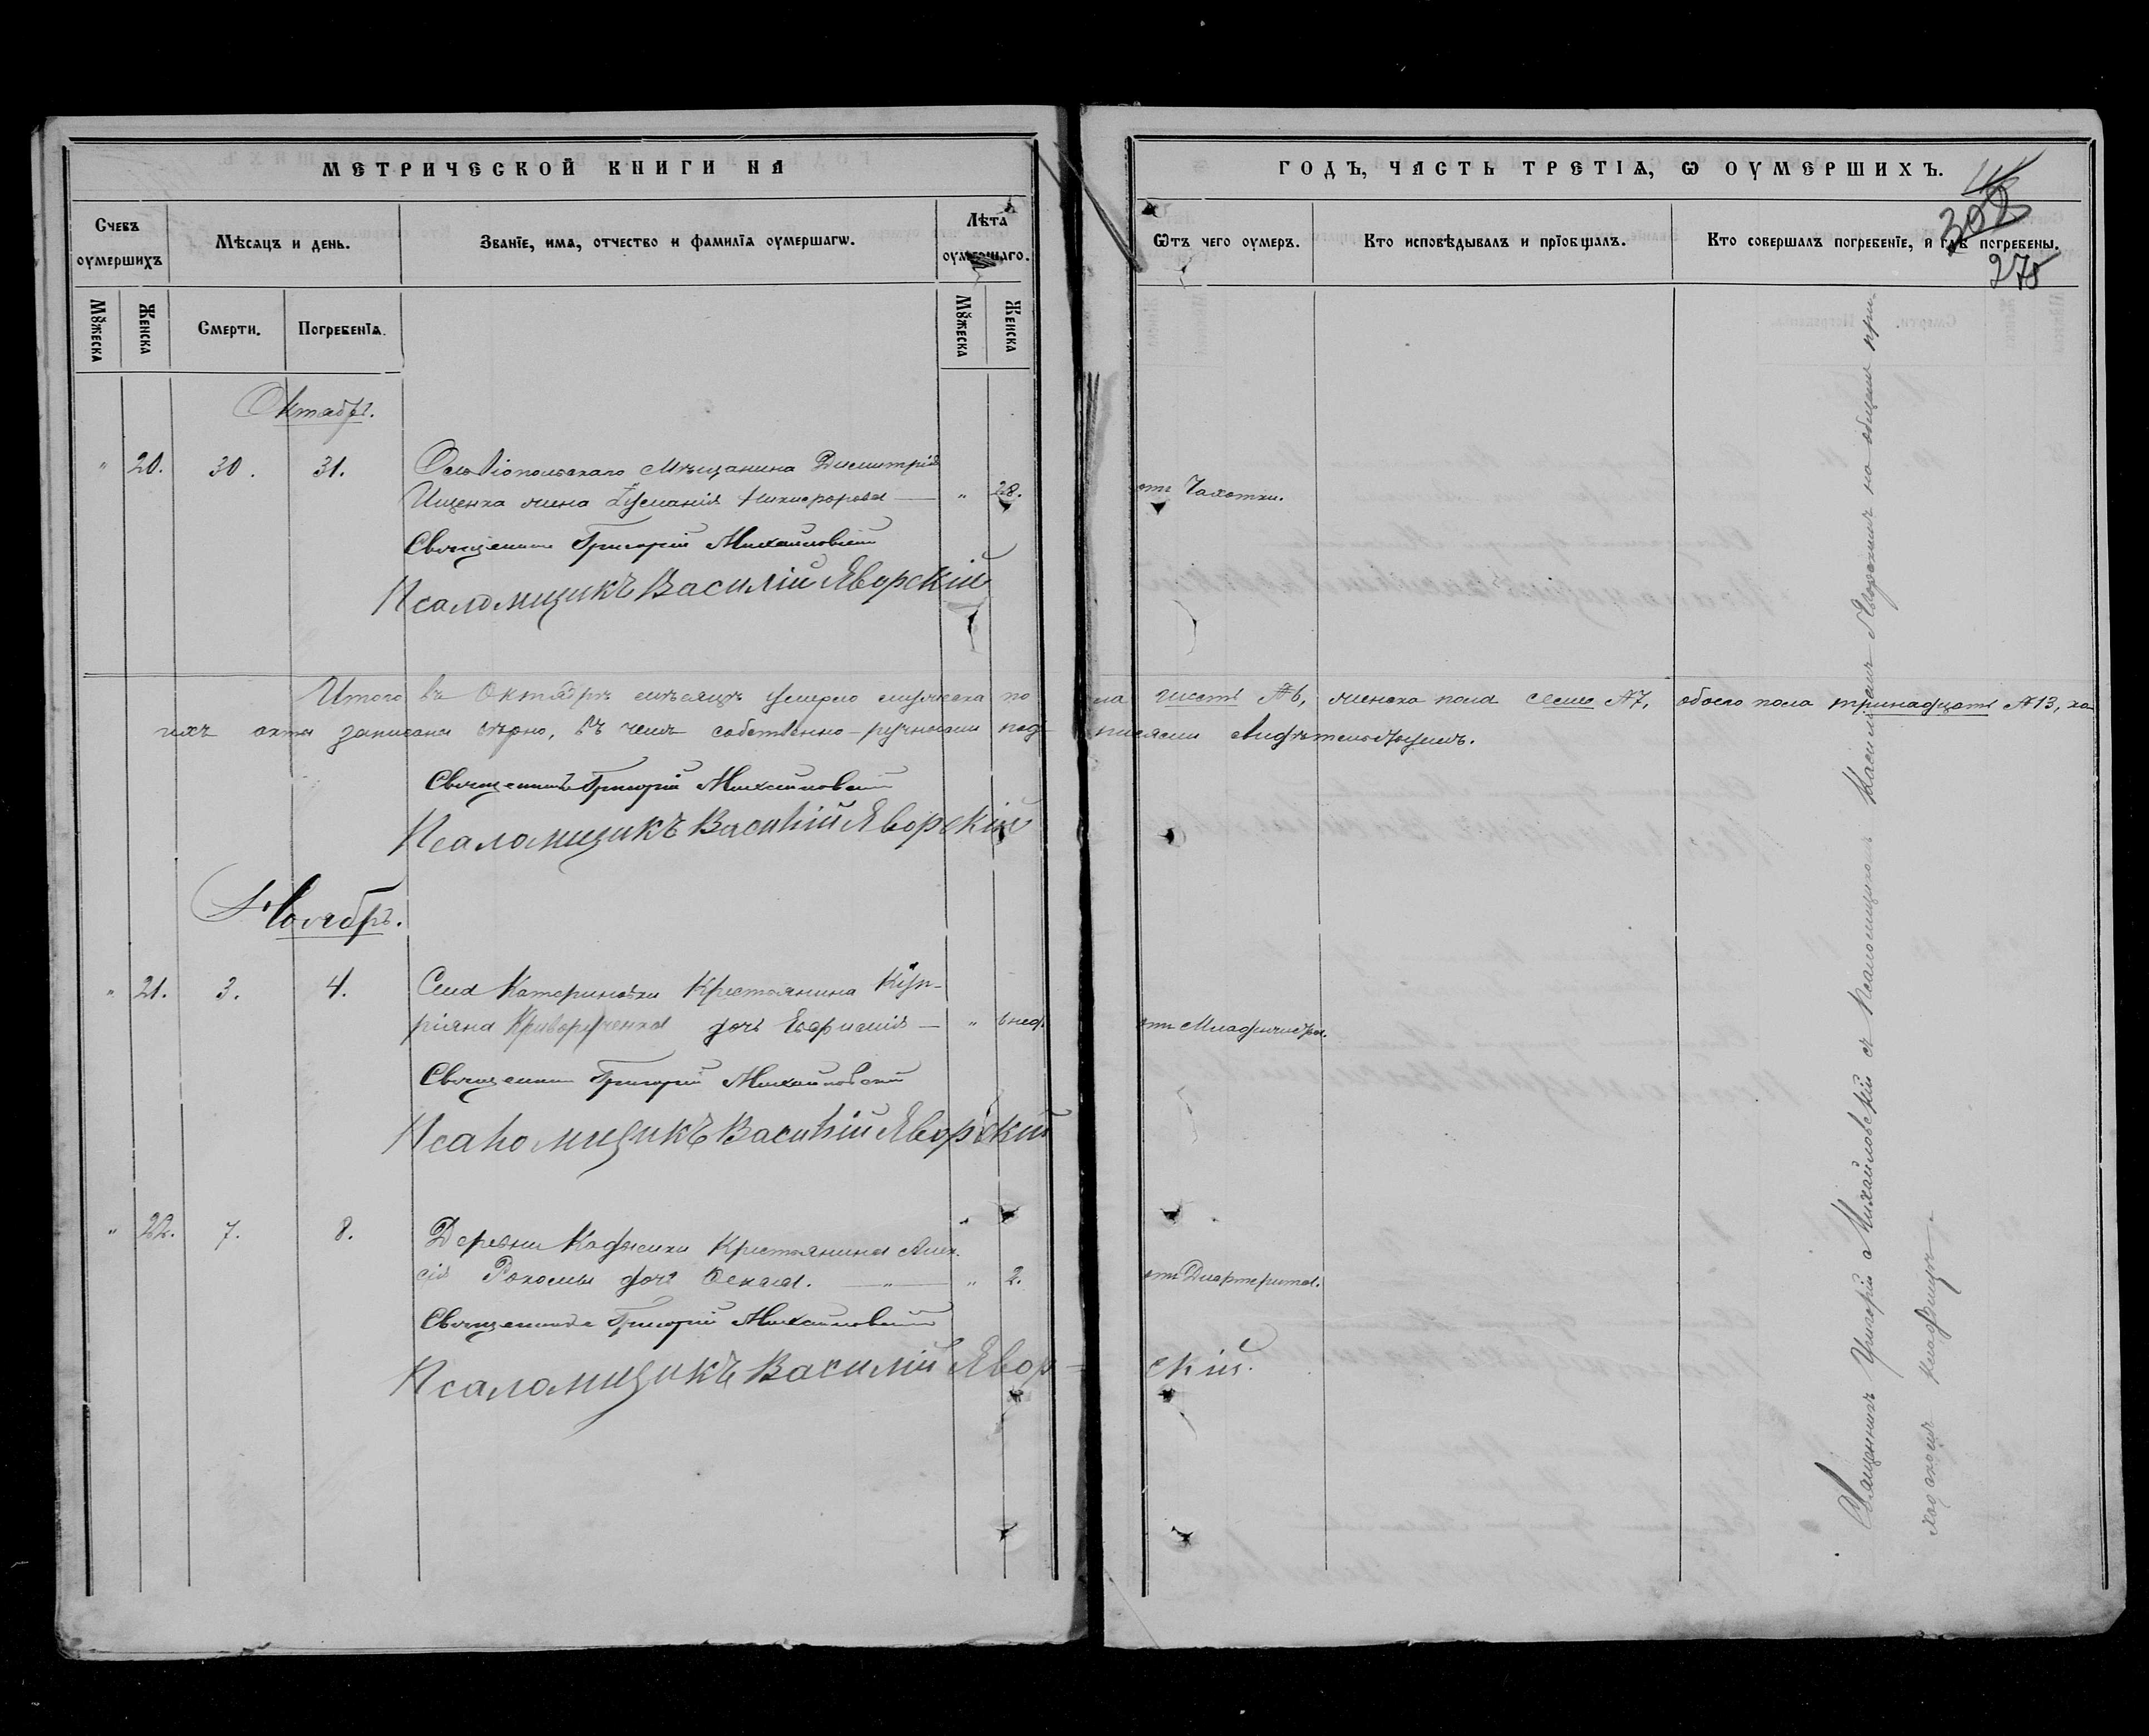 МЕТРИЧЕСКОЙ КНИГИ НА
ГОДЪ, ЧАСТЬ ТРЕТІѦ, Ѡ ОУМЕРШИХЪ.
302
275
Счевъ оумершихъ
Мѣсѧцъ и день.
Званїе, имѧ, отчество и фамилїѧ оумершагѡ.
Лѣта оумершаго.
Ѿтъ чего оумеръ.
Кто исповѣдывалъ и прїобщалъ.
Кто совершалъ погребенїе, и гдѣ погребены.
Мꙋжеска
Женска
Смерти.
Погребенїѧ.
Мꙋжеска
Женска
Октябрь.
" 20. 30. 31. Ольвіопольскаго мѣщанина Димитрія
Ищенка жена Никифорова — " 28. отъ Чахотки.
Священникъ Григорій Михайловскій
Псаломщикъ Василій Яворскій
Итого въ Октябрѣ мѣсяцѣ умерло мужеска по ла шесть №6, женска пола семь №7, обоего пола тринадцать №13, ка
ихъ акты записаны вѣрно, въ чемъ собственно-ручными под писями свидѣтельствуемъ.
Священникъ Григорій Михайловскій
Псаломщикъ Василій Яворскій
Ноябрь.
" 21. 3. 4. Села Катериновки Крестьянина Кип-
ріяна Криворученка дочь Евфимія — " 6 нед. отъ Младенческой.
Священникъ Григорій Михайловскій
Псаломщикъ Василій Яворскій
" 22. 7. 8. Деревни Крестьянина Алек-
сія дочь — " — " 2. отъ Дифтерита.
Священникъ Григорій Михайловскій
Псаломщикъ Василій Явор- скій.
Священникъ Григорій Михайловскій съ Псаломщикомъ Василіемъ Яворскимъ на общемъ при-
ходскомъ кладбищѣ.